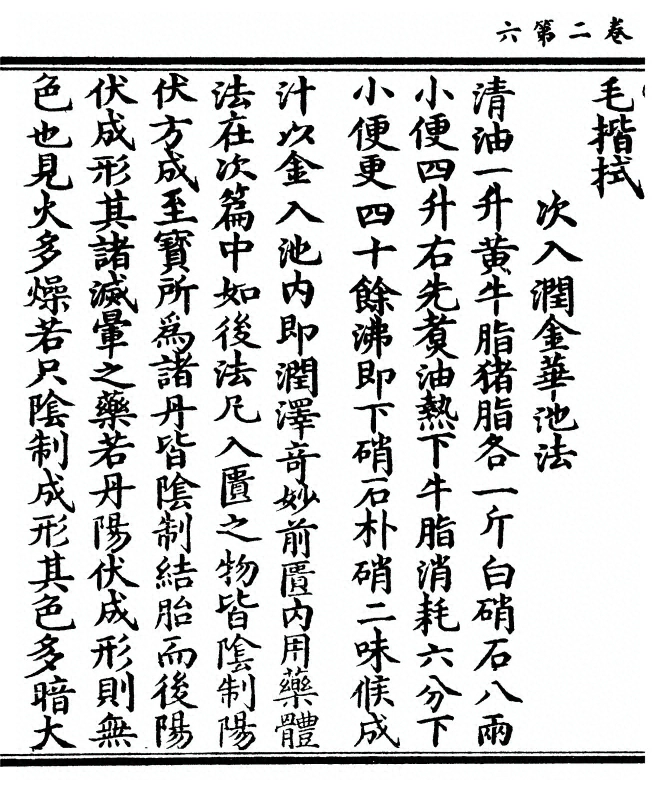 卷二第六
毛揩拭
次入潤金華池法
清油一升黄牛脂猪脂各一斤白硝石八兩
小便四升右先煑油熱下牛脂消耗六八分下
小便更四十餘沸即下硝石朴硝二味候成
汁以金入池内即潤澤竒妙前匱内用藥體
法在次篇中如後法凡入匱之物皆陰制陽
伏方成至寳所爲諸丹皆陰制結胎而後陽
伏成形其諸滅暈之藥若丹陽伏成形則無
色也見火多燥若只陰制成形其色多暗大